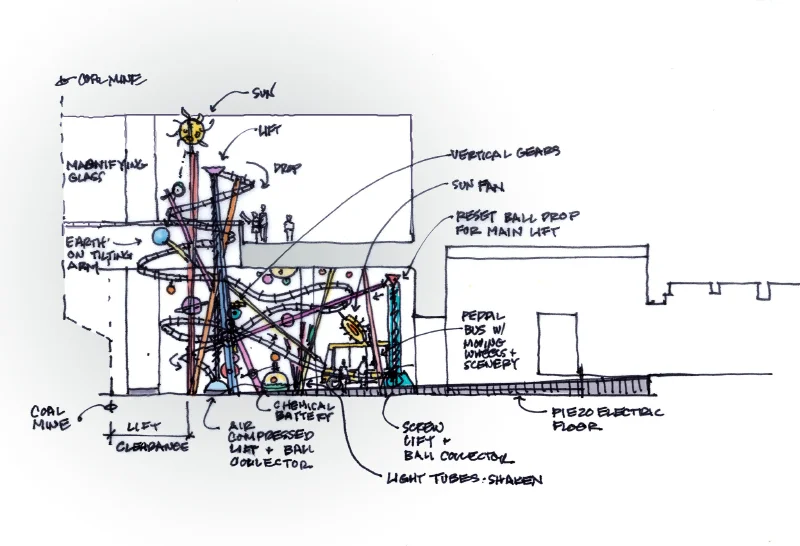 COAL MINE
SUN
LIFT
DROP
MAGNIFYING
GLASS
EARTH
ON TILTING
ARM
VERTICAL GEARS
SUN FAN
RESET BALL DROP
FOR MAIN LIFT
PEDAL
BUS W/
MOVING
WHEELS +
SCENERY
COAL
MINE
LIFT
CLEARANCE
AIR
COMPRESSED
LIFT + BALL
COLLECTOR
CHEMICAL
BATTERY
SCREW
LIFT +
BALL COLLECTOR
LIGHT TUBES - SHAKEN
PIEZO ELECTRIC
FLOOR